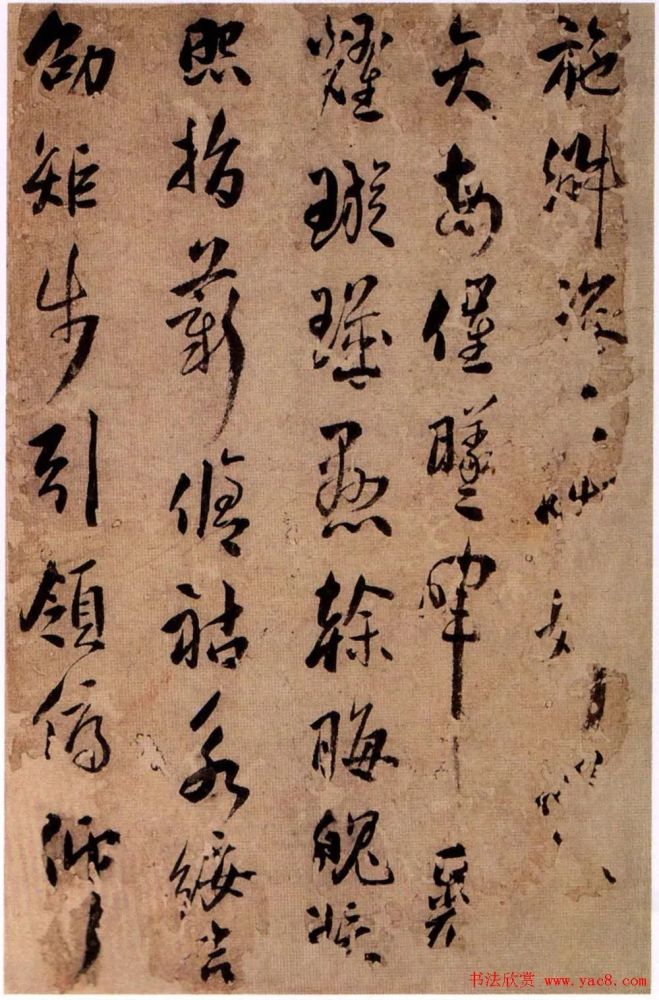 施淑姿
矢每催曦暉
耀璇璣懸斡晦魄環
照指薪修祜永綏吉
劭矩步引領俯仰
书法欣赏 www.yac8.com